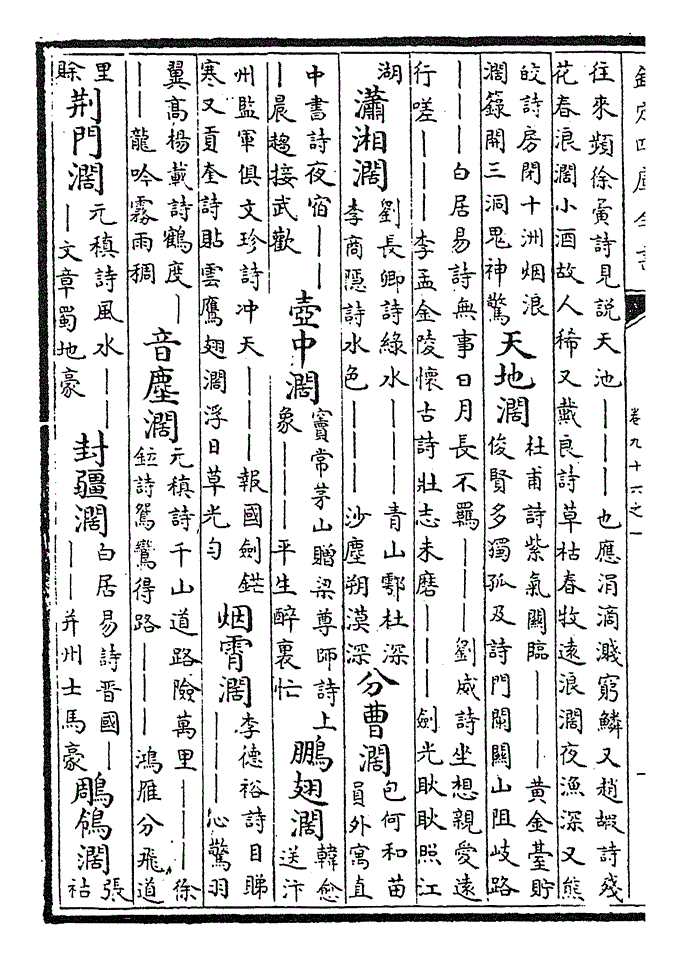 欽定四庫全書
卷九十六之一
往來頻徐夤詩見說天池｜｜｜也應涓滴濺窮鱗又趙嘏詩殘
花春浪濶小酒故人稀又戴良詩草枯春牧遠浪濶夜漁深又熊
皎詩房閉十洲烟浪
濶籙開三洞鬼神驚
天地濶
杜甫詩紫氣關臨｜｜｜黄金臺貯
俊賢多獨孤及詩門開闢山阻岐路
｜｜｜白居易詩無事日月長不羈｜｜｜劉威詩坐想親愛遠
行嗟｜｜｜李孟金陵懷古詩壯志未磨｜｜｜劍光耿耿照江
湖
瀟湘濶
劉長卿詩綠水｜｜｜青山鄠杜深
李商隱詩水色｜｜｜沙塵朔漠深
分曹濶
包何和苗
員外寓直
中書詩夜宿｜｜
｜晨趨接武歡
壺中濶
竇常茅山贈梁尊師詩上
象｜｜｜平生醉裏忙
鵬翅濶
韓愈
送汴
州監軍俱文珍詩冲天｜｜｜報國劍鋩
寒又貢奎詩貼雲鷹翅濶浮日草光勻
烟霄濶
李德裕詩目睇
｜｜｜心驚羽
翼高楊載詩鶴度｜
｜｜龍吟霧雨稠
音塵濶
元稹詩千山道路險萬里｜｜｜徐
鉉詩鴛鸞得路｜｜｜鴻雁分飛道
里
賖
荆門濶
元稹詩風水｜｜
｜文章蜀地豪
封疆濶
白居易詩晋國｜
｜｜并州士馬豪
鵰鶚濶
張
祜